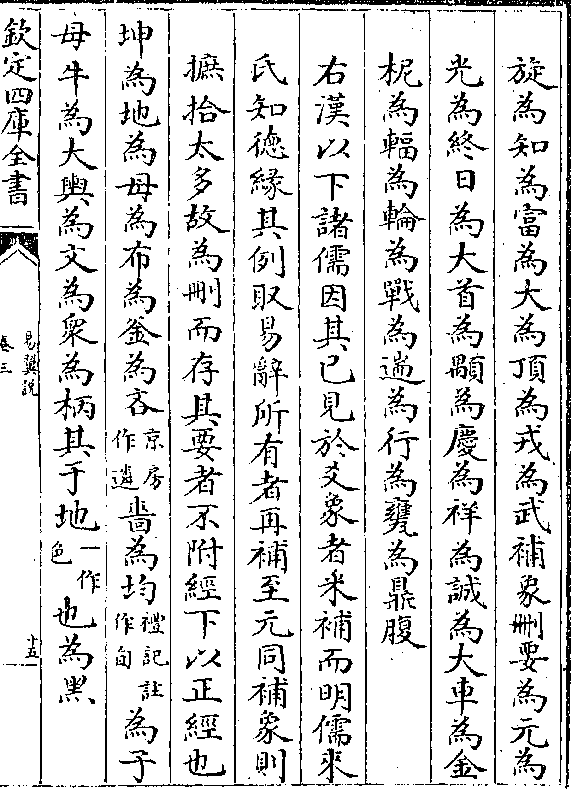 旋為知為富為大為頂為戎為武補象刪要為元為
光為終日為大首為顒為慶為祥為誠為大車為金
柅為輻為輪為戰為遄為行為甕為鼎腹
右漢以下諸儒因其已見於爻象者采補而明儒來
氏知德緣其例取易辭所有者再補至元同補象則
摭拾太多故為刪而存其要者不附經下以正經也
坤為地為母為布為釜為吝京房作遴嗇為均禮記註作旬為子
母牛為大輿為文為衆為柄其于地一作色也為黑
欽定四庫全書
易翼説
卷三
十五